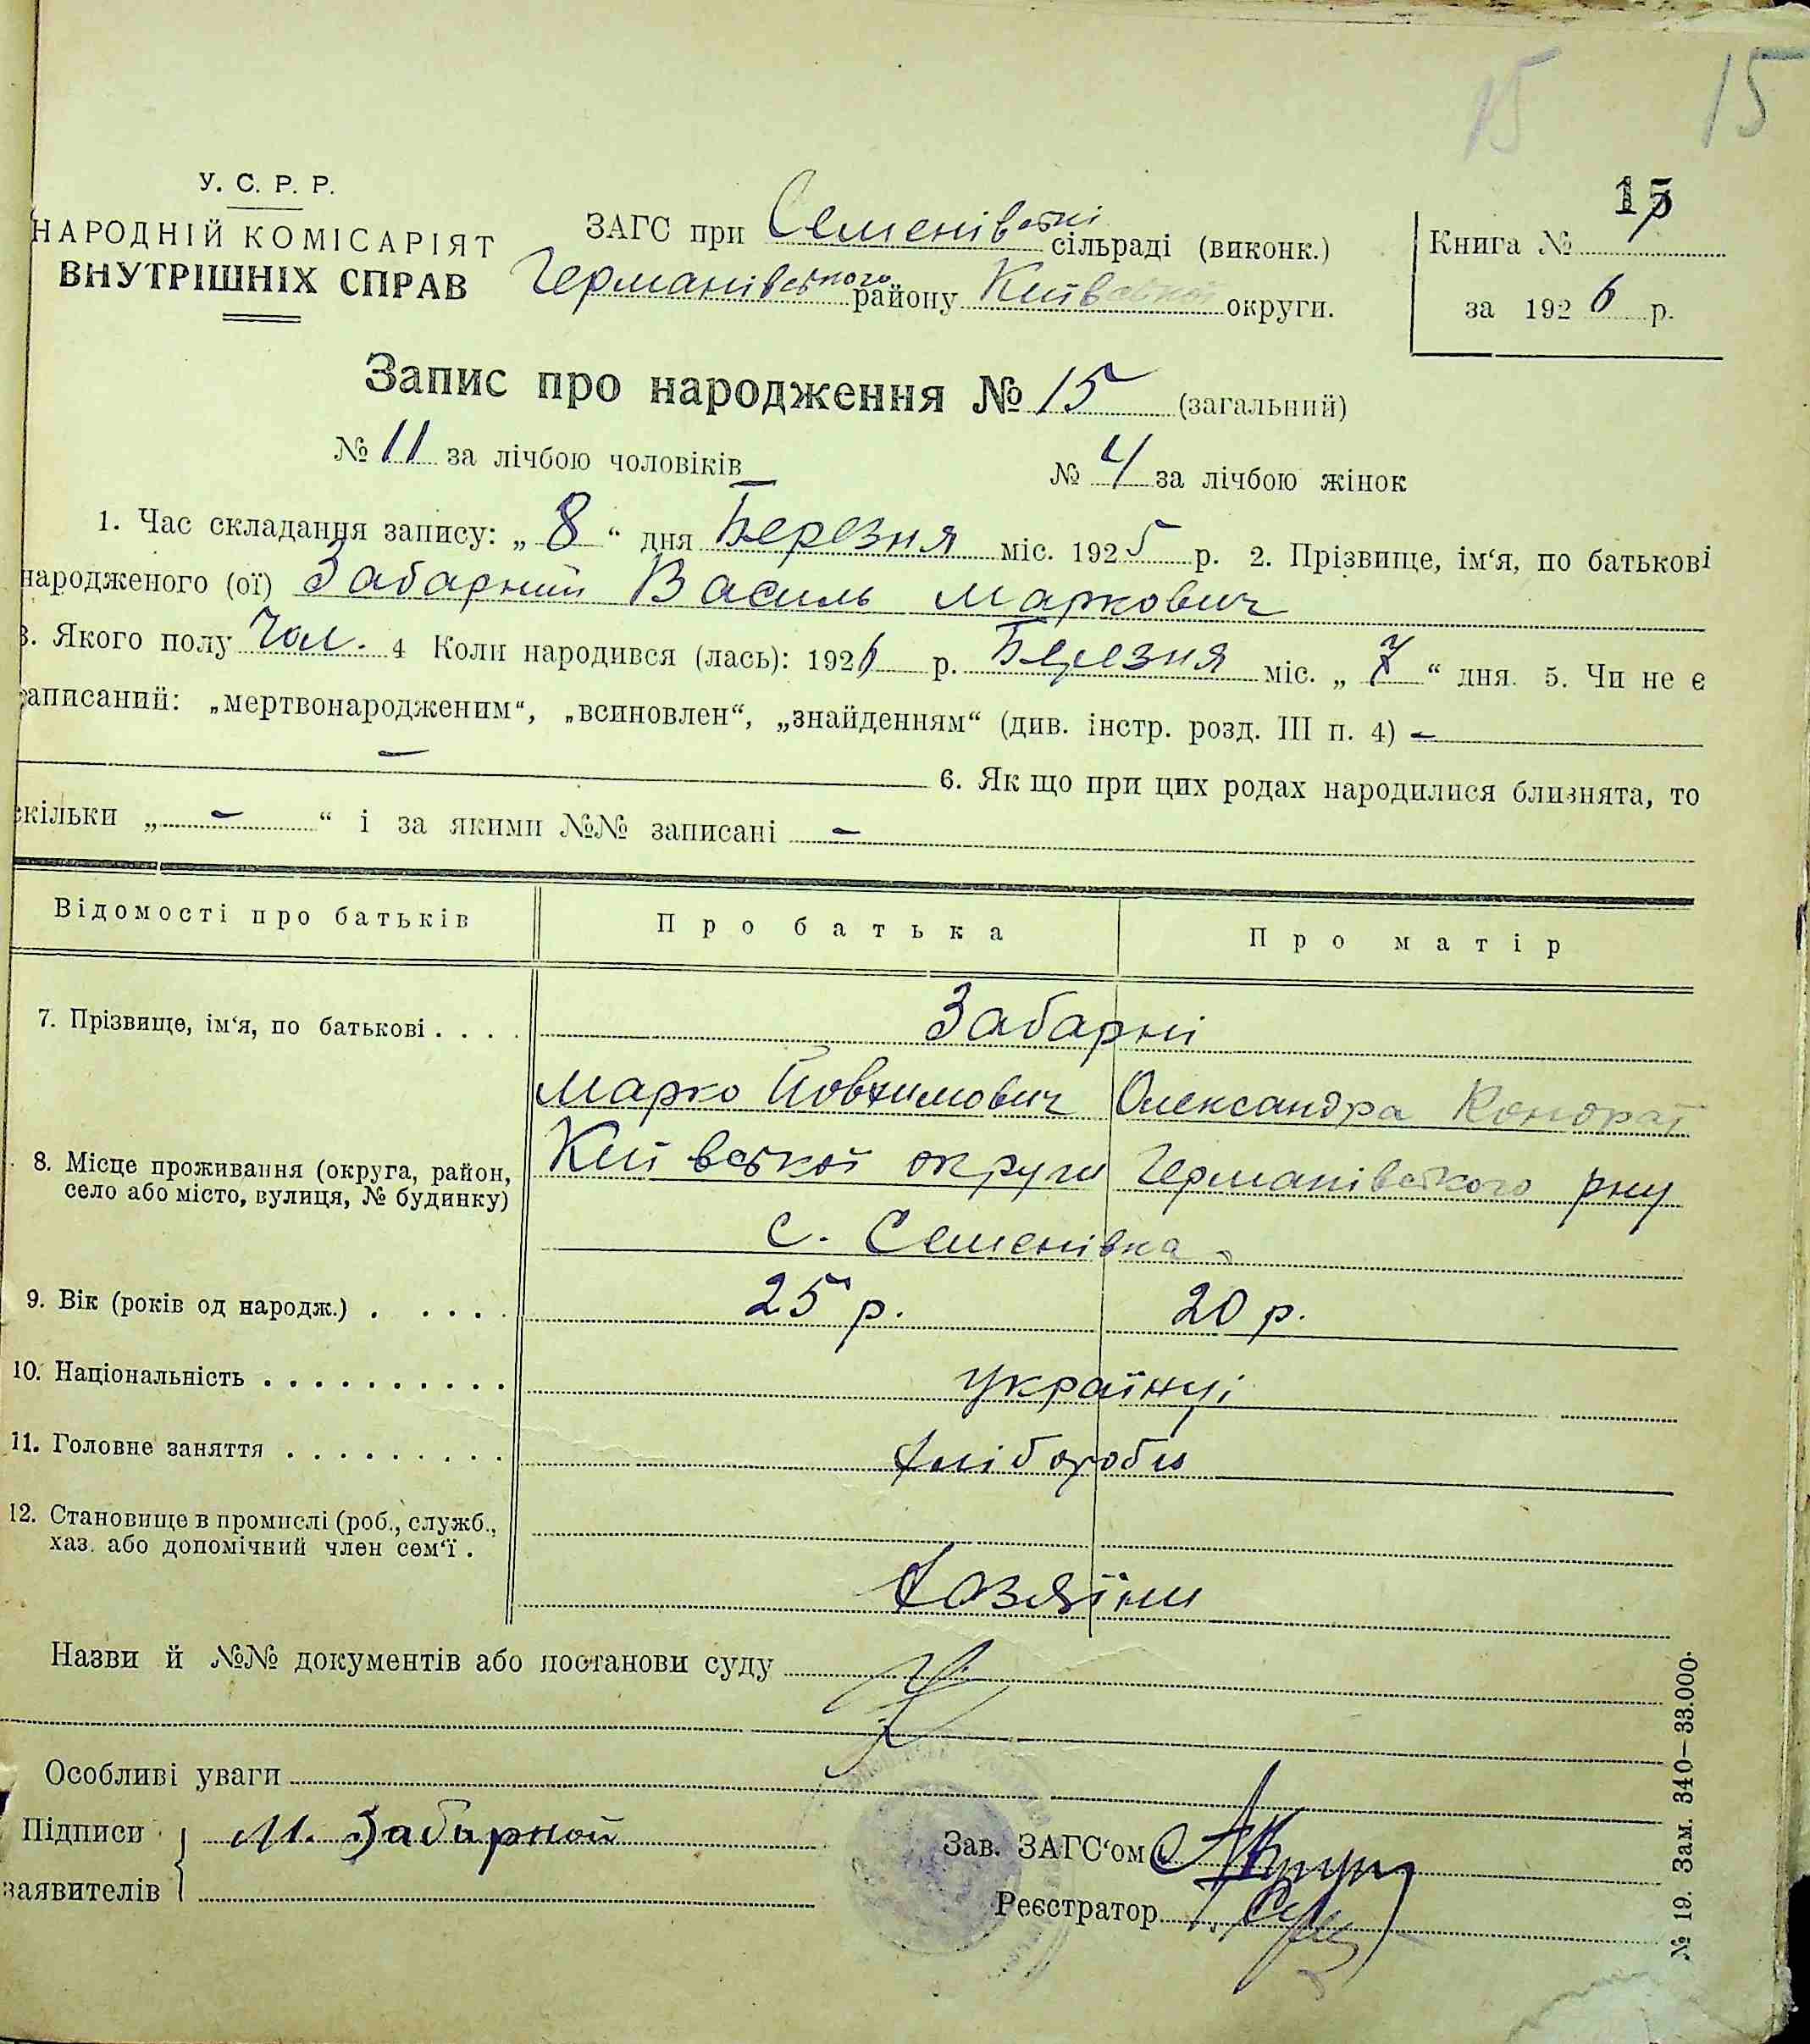 15 15
15
У. С. Р. Р.
НАРОДНІЙ КОМІСАРІЯТ
ВНУТРІШНІХ СПРАВ
ЗАГС при Семенівській сільраді (виконк.)
Германівського району Київської округи.
Книга №
за 1926 р.
Запис про народження № 15 (загальний)
№ 11 за лічбою чоловіків № 4 за лічбою жінок
1. Час складання запису: „ 8 “ дня Березня міс. 1925 р. 2. Прізвище, ім‘я, по батькові
народженого (ої) Забарний Василь Маркович
3. Якого полу Чол. 4 Коли народився (лась): 1926 р. Березня міс. „ 7 “ дня. 5. Чи не є
записаний: „мертвонародженим“, „всиновлен“, „знайденням“ (див. інстр. розд. III п. 4) –
– 6. Як що при цих родах народилися близнята, то
скільки „ – “ і за якими №№ записані –
Відомості про батьків Про батька Про матір
7. Прізвище, ім‘я, по батькові . . . . Забарні
Марко Йовхимович Олександра Кондрат
8. Місце проживання (округа, район, село або місто, вулиця, № будинку) Київської округи Германівського рну
с. Семенівка
9. Вік (років од народж.) . . . . . 25 р. 20 р.
10. Національність . . . . . . . . . . українці
11. Головне заняття . . . . . . . . . хлібороби
12. Становище в промислі (роб., служб.,
хаз. або допомічний член сем‘ї .
хозяїни
Назви й №№ документів або постанови суду
Особливі уваги
Підписи заявителів М. Забарной
Зав. ЗАГС‘ом
Реєстратор
№ 19. Зам. 340—33.000.